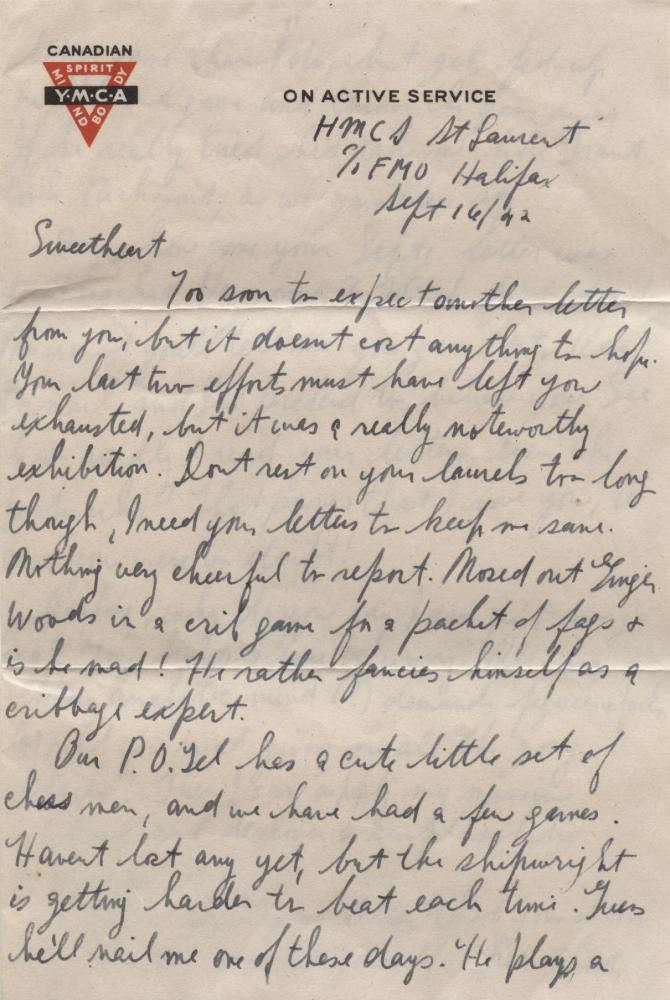 CANADIAN
SPIRIT
MIND BODY
Y·M·C·A
ON ACTIVE SERVICE
HMCS St Laurent
℅ FMO Halifax
Sept 16/42
Sweetheart
Too soon to expect another letter
from you, but it doesnt cost anything to hope.
Your last two efforts must have left you
exhausted, but it was a really noteworthy
exhibition. Dont rest on your laurels too long
though, I need your letters to keep me sane.
Nothing very cheerful to report. Nosed out Ginger
Woods in a crib game for a packet of fags &
is he mad! He rather fancies himself as a
cribbage expert.
Our P.O. Tel has a cute little set of
chess men, and we have had a few games.
Havent lost any yet, but the shipwright
is getting harder to beat each time. Guess
he'll nail me one of these days. He plays a